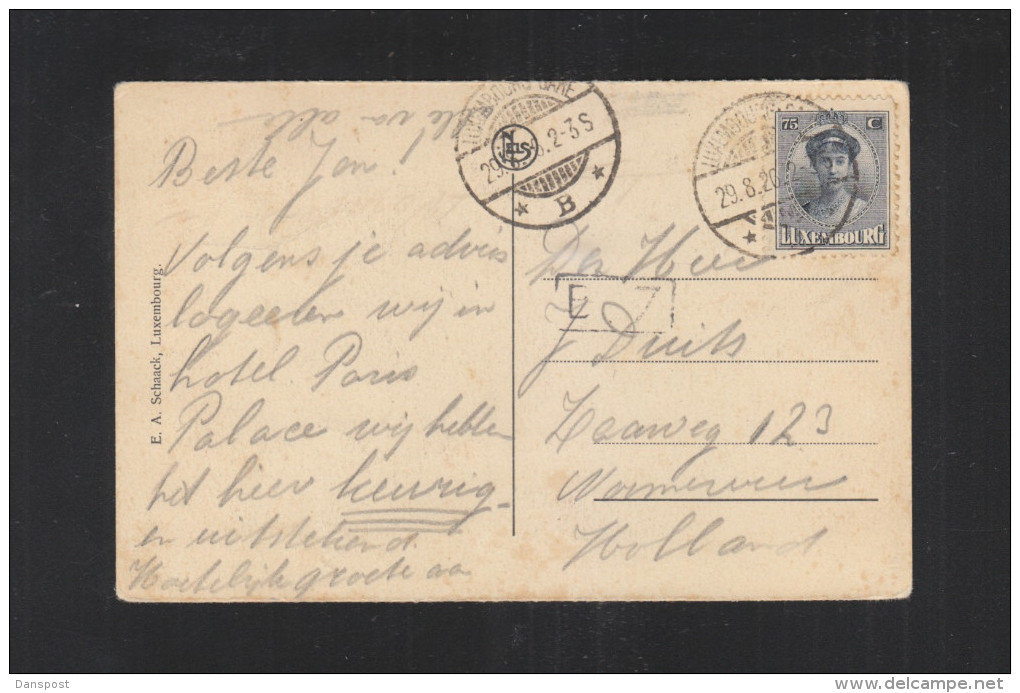 alle va alle
Beste Jan!
Volgens je advies
logeeren wij in
hotel Paris
Palace wij hebben
het hier keurig
en uitstekend.
Hartelijk groete aa
E. A. Schaack, Luxembourg.
LUXEMBOURG GARE
29.8.26. 2-3 S
B
NELS
LUXEMBOURG GARE
29.8.26
75 C
LUXEMBOURG
De Heer
E 7
J Duits
Zaanweg 123
Wormerveer
Holland
Danspost
www.delcampe.net